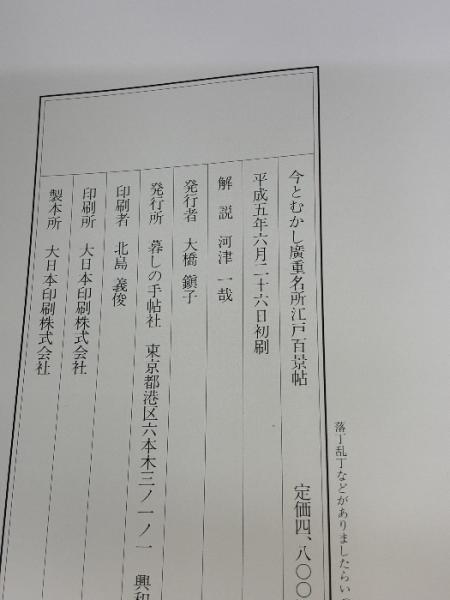 落丁乱丁などがありましたらい
今とむかし廣重名所江戸百景帖 定価四、八〇〇
平成五年六月二十六日初刷
解説 河津一哉
発行者 大橋鎭子
発行所 暮しの手帖社 東京都港区六本木三ノ一ノ一 興和
印刷者 北島義俊
印刷所 大日本印刷株式会社
製本所 大日本印刷株式会社